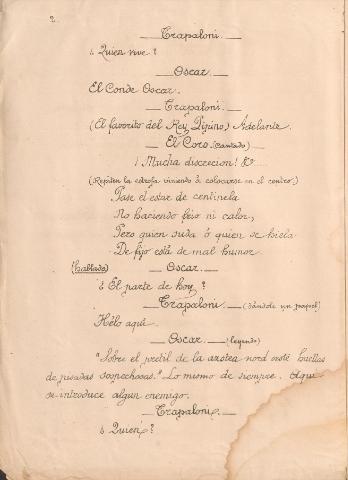 2.
Trapaloni.
¿Quien vive?
Oscar.
El Conde Oscar.
Trapaloni.
(El favorito del Rey Pipino) Adelante.
El Coro (cantado)
¡Mucha discrecion! &ª
(Repiten la estrofa viniendo á colocarse en el centro.)
Pase el estar de centinela
No haciendo frio ni calor,
Pero quien suda ó quien se hiela
De fijo está de mal humor.
(hablado) Oscar.
¿El parte de hoy?
Trapaloni. (dándole un papel)
Hélo aquí.
Oscar. (leyendo)
"Sobre el pretil de la azotea nord oesté huellas
de pisadas sospechosas." Lo mismo de siempre. Aqui
se introduce algun enemigo.
Trapaloni.
¿Quien?